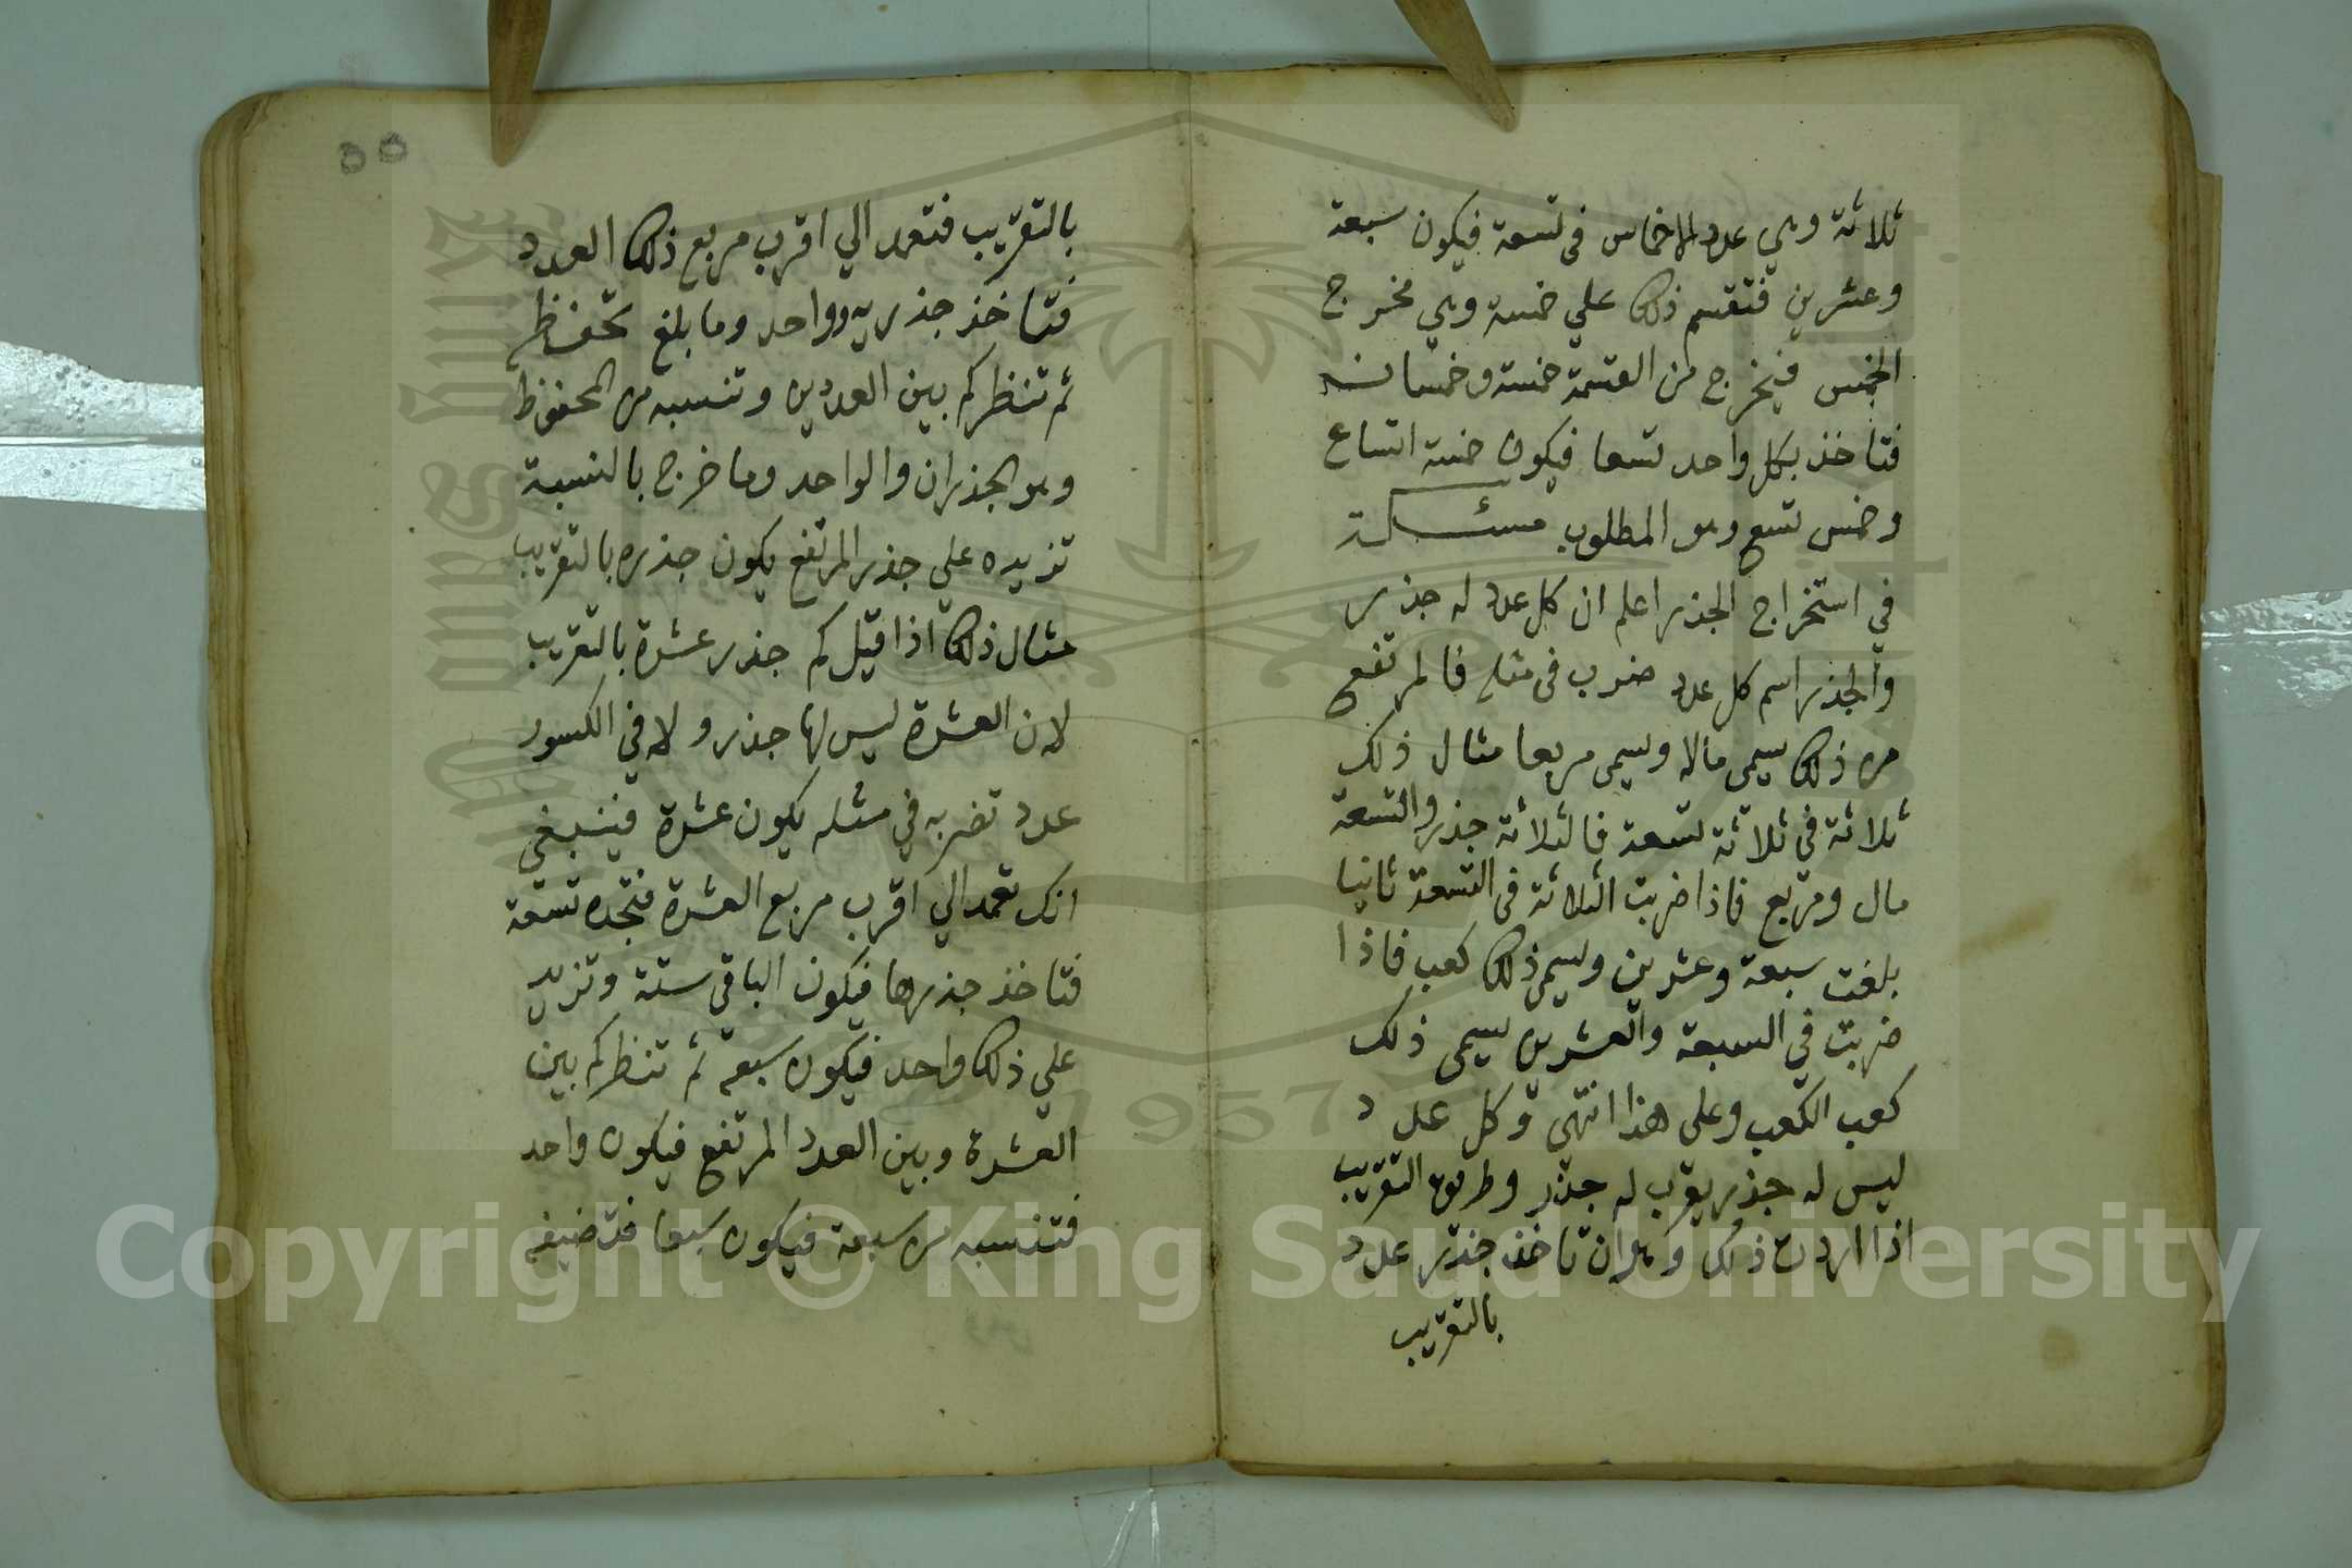 ثلاثة وهي عدد الاخماس في تسعة فيكون سبعة
وعشرين فتقسم ذلك علي خمسة وهي مخرج
الخمس فيخرج من القسمة خمسة وخمسان
فتاخذ بكل واحد تسعا فيكون خمسة اتساع
وخمس تسع وهو المطلوب مسئلة
في استخراج الجذر اعلم ان كل عدد له جذر
والجذر اسم كل عدد ضرب في مثله فالمرتفع
من ذلك يسمى مالا ويسمى مربعا مثال ذلك
ثلاثة في ثلاثة تسعة فالثلاثة جذر والتسعة
مال ومربع فاذا ضربت الثلاثة في التسعة ثانيا
بلغت سبعة وعشرين ويسمى ذلك كعب فاذا
ضربت في السبعة والعشرين يسمى ذلك
كعب الكعب وعلى هذا انتهي وكل عدد
ليس له جذر يقرب له جذر وطريق التقريب
اذا اردت ذلك وهو ان تاخذ جذر عدد
بالتقريب
٥٥
بالتقريب فتعمد الي اقرب مربع ذلك العدد
فتاخذ جذريه وواحد وما بلغ تحفظه
ثم تنظر كم بين العددين وتنسبه من المحفوظ
وهو الجذران والواحد وما خرج بالنسبة
تزيده علي جذر المرتفع يكون جذره بالتقريب
مثال ذلك اذا قيل كم جذر عشرة بالتقريب
لان العشرة ليس لها جذر ولا في الكسور
عدد تضربه في مثله يكون عشرة فينبغي
انك تعمد الي اقرب مربع العشرة فتجده تسعة
فتاخذ جذرها فيكون الباقي ستة وتزيد
علي ذلك واحد فيكون سبعة ثم تنظر كم بين
العشرة وبين العدد المرتفع فيكون واحد
فتنسبه من سبعة فيكون سبعا فتضيفه
1957
Copyright © King Saud University